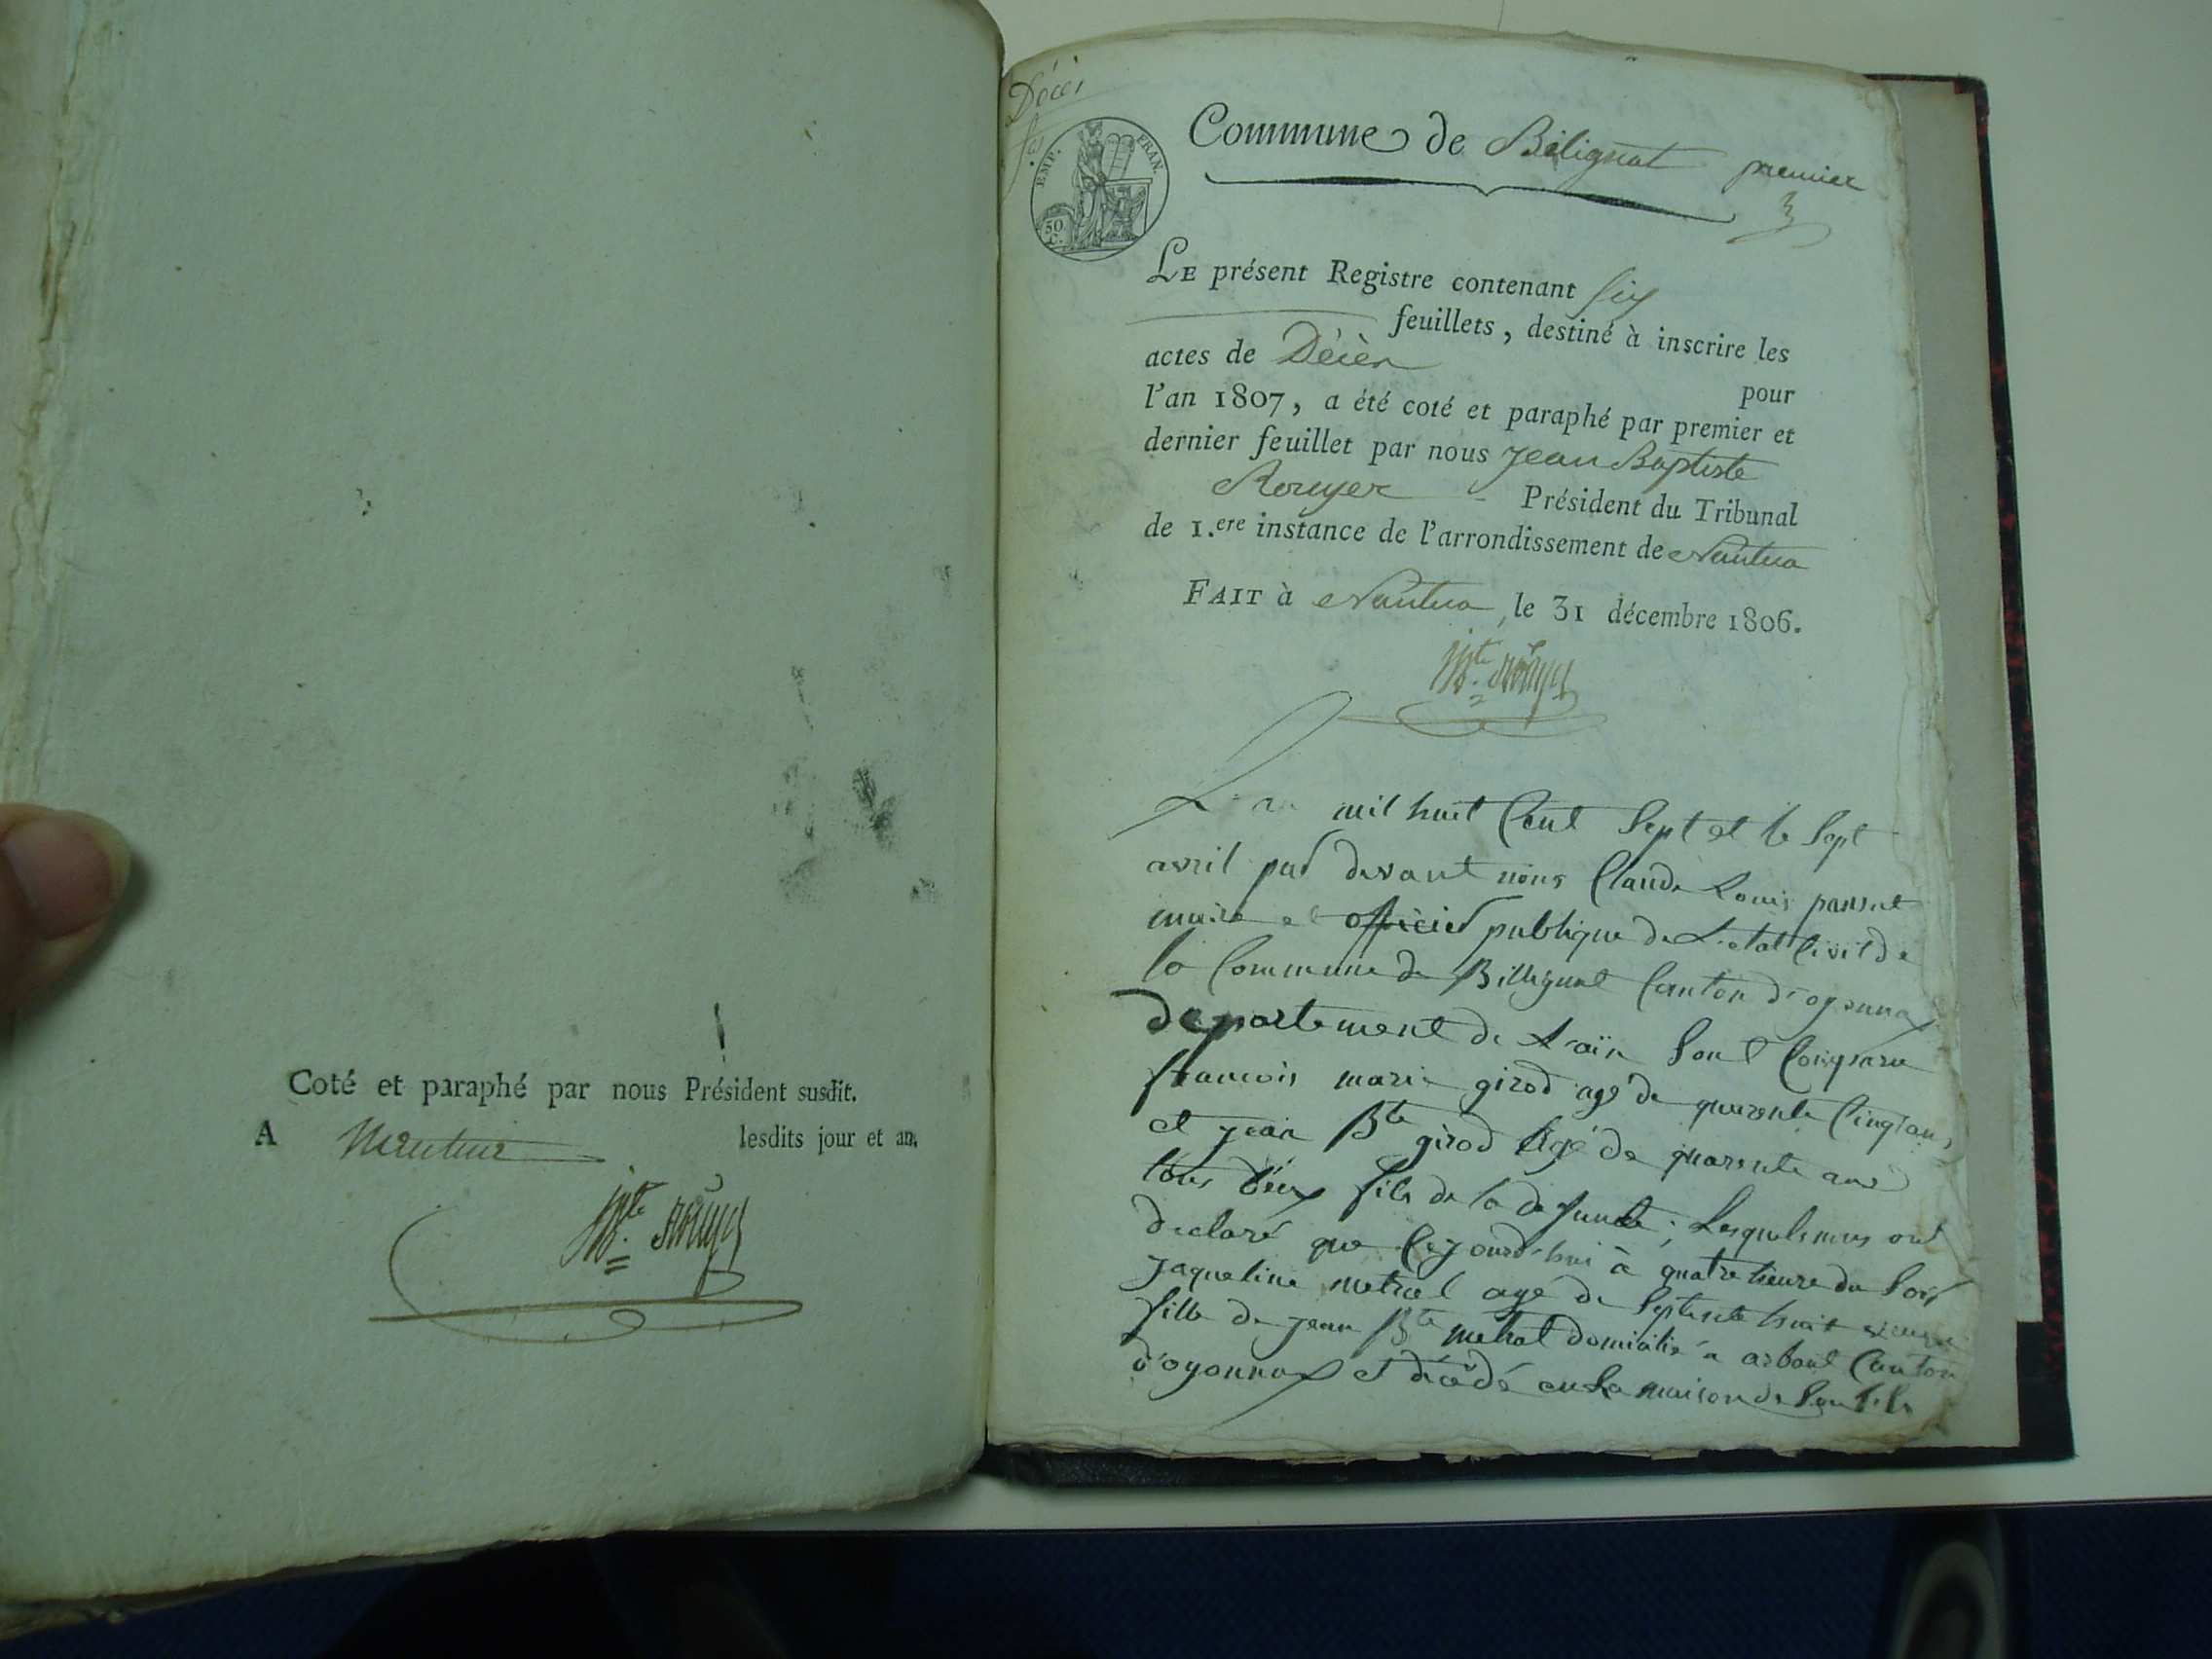 Coté et paraphé par nous Président susdit.
A Nantua lesdits jour et an.
JBte Rouyer
Décès
EMP. FRAN.
50 C.
Commune de Bélignat premier
LE présent Registre contenant six
feuillets, destiné à inscrire les
actes de Décès
pour
l'an 1807, a été coté et paraphé par premier et
dernier feuillet par nous Jean Baptiste
Rouyer Président du Tribunal
de 1.ere instance de l'arrondissement de Nantua
FAIT à Nantua, le 31 décembre 1806.
JBte Rouyer
L'an mil huit Cent Sept et le Sept
avril par devant nous Claude Louis
maire et officier publique de L'etat Civil de
la Commune de Billignat Canton d'oyonnax
departement de L'aïn Sont Comparu
francois marie girod agé de quarente Cinq ans
et jean Bte girod Agé de quarente ans
tous deux fils de la defunte; Lesquels nous ont
declaré que Cejourd'hui à quatre heure du Soir
jaqueline metral agé de Septente huit
fille de jean Bte metral domicilié a arbant Canton
d'oyonnax et décédé en la maison de Son fils